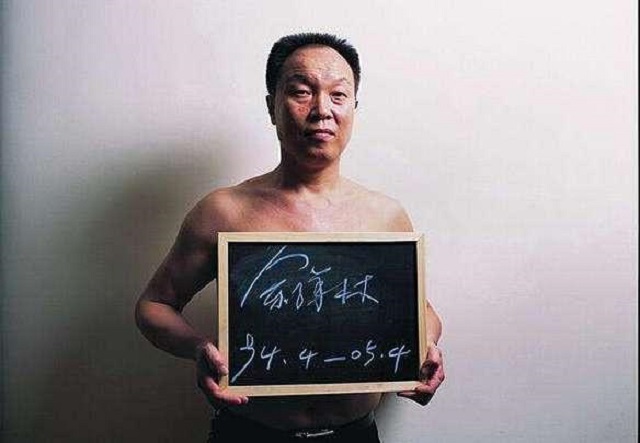 佘祥林
94.4—05.4